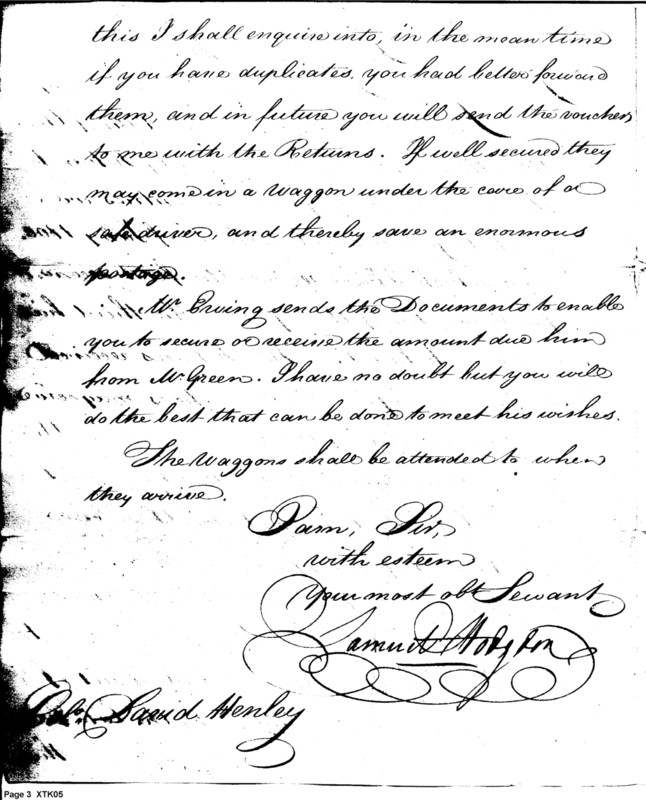 this I shall enquire into, in the mean time
if you have duplicates, you had better forward
them, and in future you will send the vouchers
to me with the Returns. If well secured they
may come in a waggon under the care of a
safe driver, and thereby save an enormous
postage.
Mr. Ewing sends the Documents to enable
you to secure or receive the amount due him
from Mr Green. I have no doubt but you will
do the best that can be done to meet his wishes.
The Waggons shall be attended to when
they arrive.
I am, Sir,
with esteem
Your most obt Servant
Samuel Hodgdon
Colo. David Henley
Page 3 XTK05